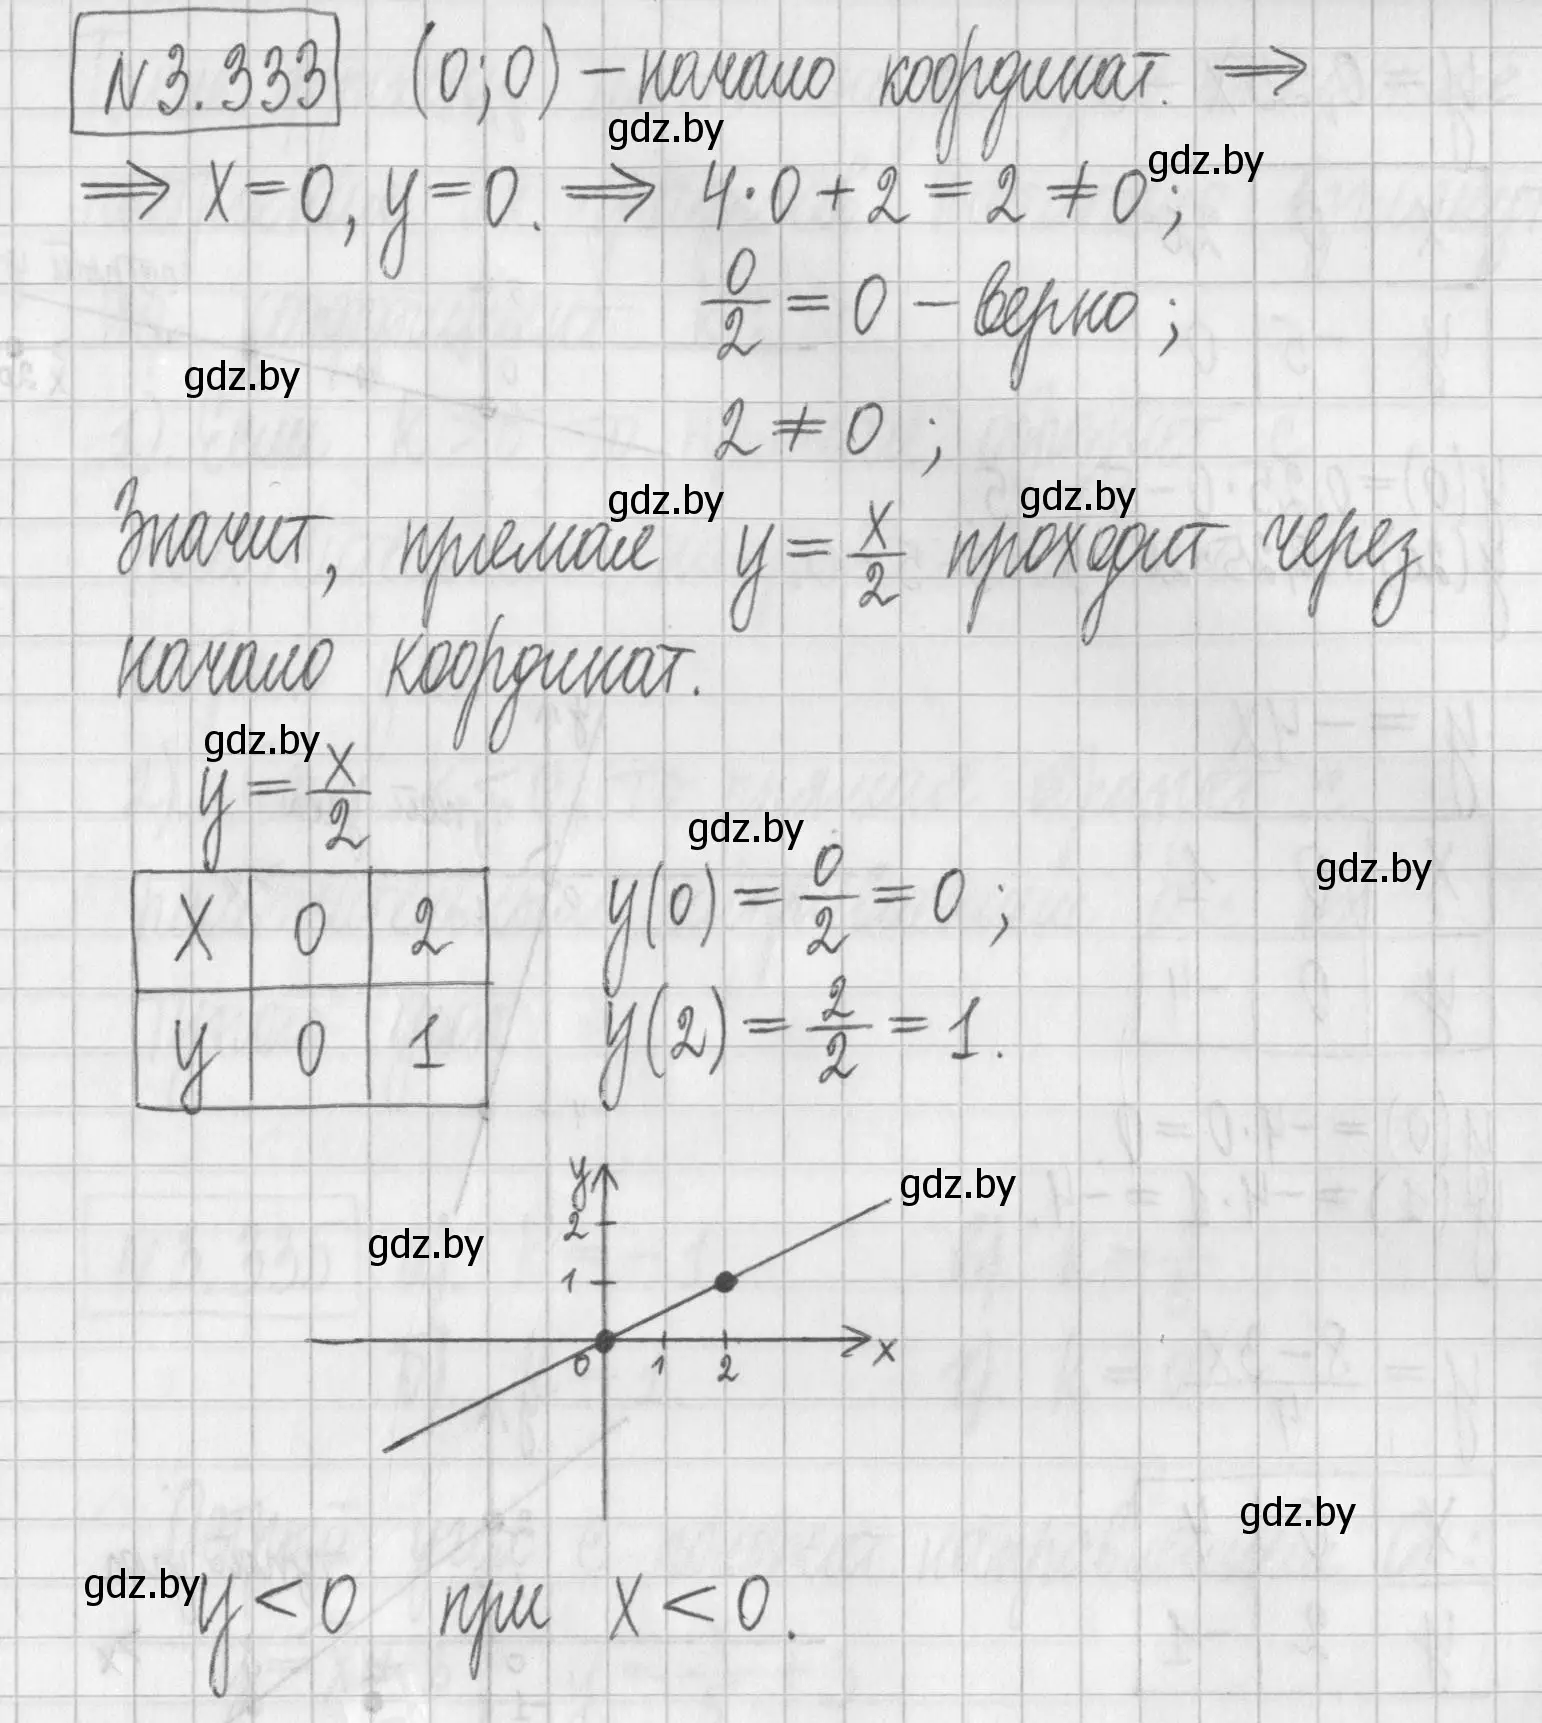 №3.333 (0;0) – начало координат. ⇒
gdz.by
gdz.by
⇒ x=0, y=0. ⇒ 4·0+2=2≠0;
0/2=0 – верно;
gdz.by
2≠0;
gdz.by
gdz.by
Значит, прямая y=x/2 проходит через
начало координат.
gdz.by
y=x/2
gdz.by
gdz.by
x 0 2
y 0 1
y(0)=0/2=0;
y(2)=2/2=1.
gdz.by
gdz.by
y
2
1
0 1 2 x
gdz.by
gdz.by
y<0 при x<0.